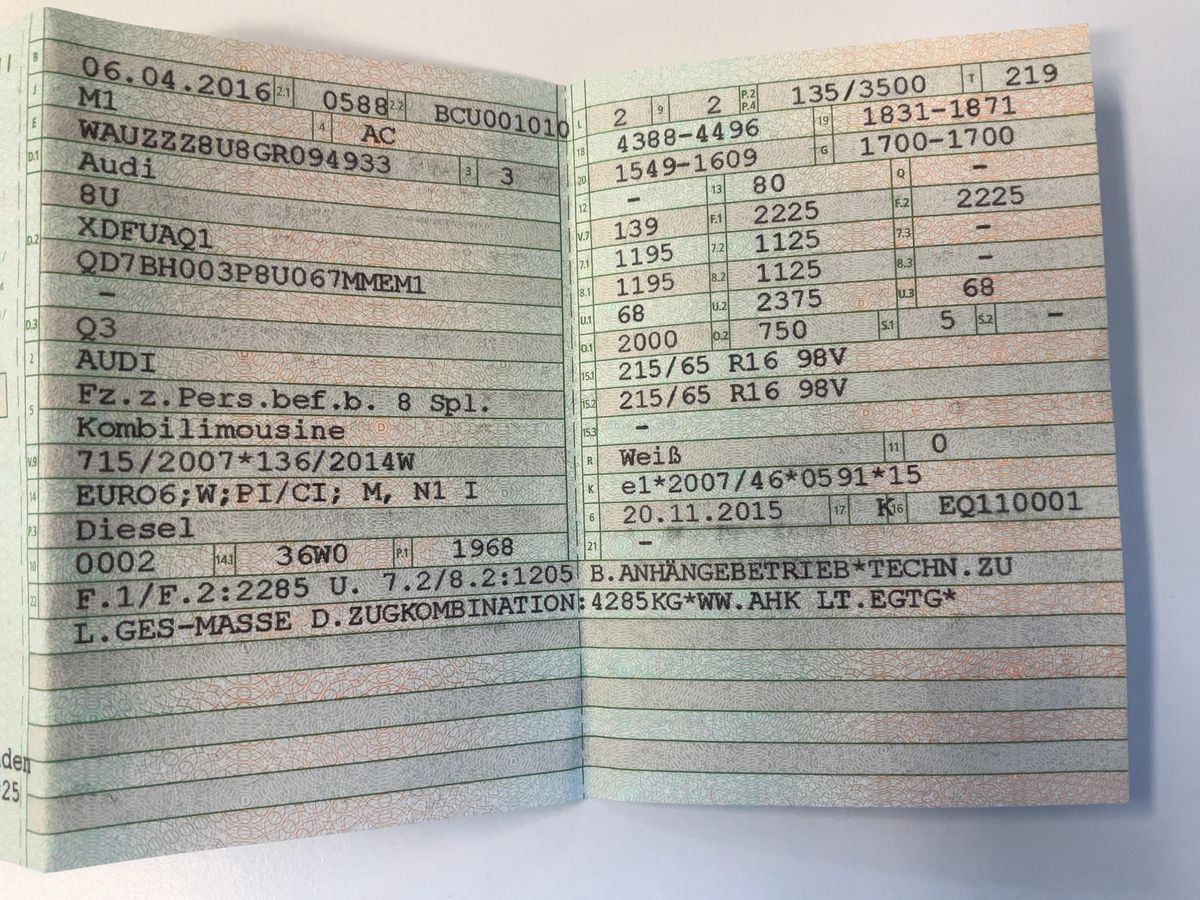 B 06.04.2016 2.1 0588 2.2 BCU001010
J M1 4 AC
E WAUZZZ8U8GR094933 3 3
D.1 Audi
8U
D.2 XDFUAQ1
QD7BH003P8U067MMEM1
–
D.3 Q3
2 AUDI
5 Fz.z.Pers.bef.b. 8 Spl.
Kombilimousine
V.9 715/2007*136/2014W
14 EURO6;W;PI/CI; M, N1 I
P.3 Diesel
10 0002 14.1 36W0 P.1 1968
L 2 9 2 P.2 P.4 135/3500 T 219
18 4388–4496 19 1831–1871
20 1549–1609 G 1700–1700
12 – 13 80 Q –
V.7 139 F.1 2225 F.2 2225
7.1 1195 7.2 1125 7.3 –
8.1 1195 8.2 1125 8.3 –
U.1 68 U.2 2375 U.3 68
O.1 2000 O.2 750 S.1 5 S.2 –
15.1 215/65 R16 98V
15.2 215/65 R16 98V
15.3 –
R Weiß 11 0
K e1*2007/46*0591*15
6 20.11.2015 17 K 16 EQ110001
21 –
22 F.1/F.2:2285 U. 7.2/8.2:1205 B.ANHÄNGEBETRIEB*TECHN.ZU
L.GES–MASSE D.ZUGKOMBINATION:4285KG*WW.AHK LT.EGTG*
25